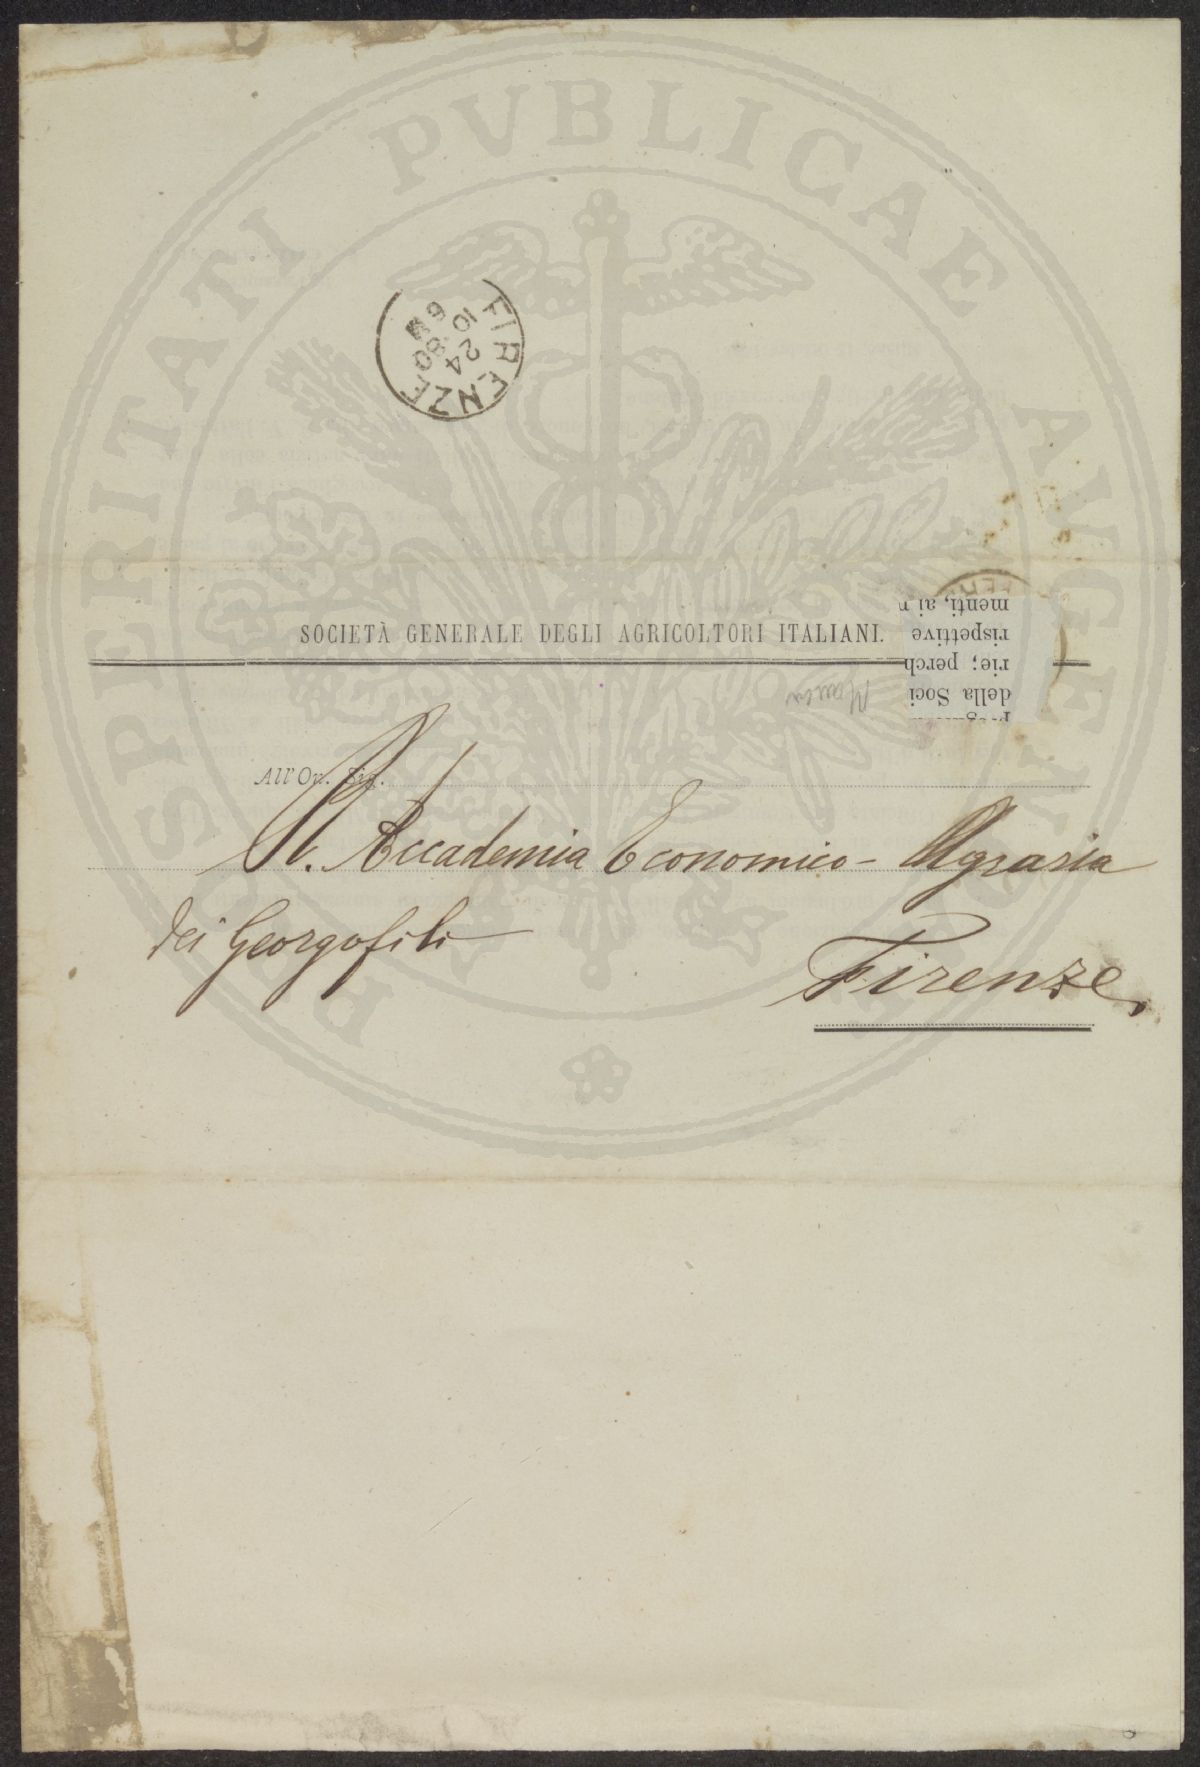 PROSPERITATI PVBLICAE AVGENDAE
FIRENZE
10
24
80
SOCIETÀ GENERALE DEGLI AGRICOLTORI ITALIANI.
della Soci
rie; perch
rispettive
menti, ai
All'On. Sig.
R. Accademia Economico-Agraria
dei Georgofili
Firenze